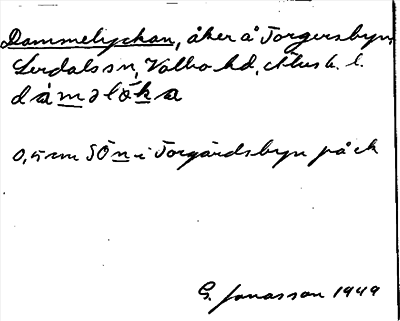 Dammelyckan, åker å Torgersbyn,
Lerdals sn, Valbo hd, Älvsb. l.
dám̲əlök̲a
0,5 cm SÖn i Torgärdsbyn på ek
G. Jonasson 1949